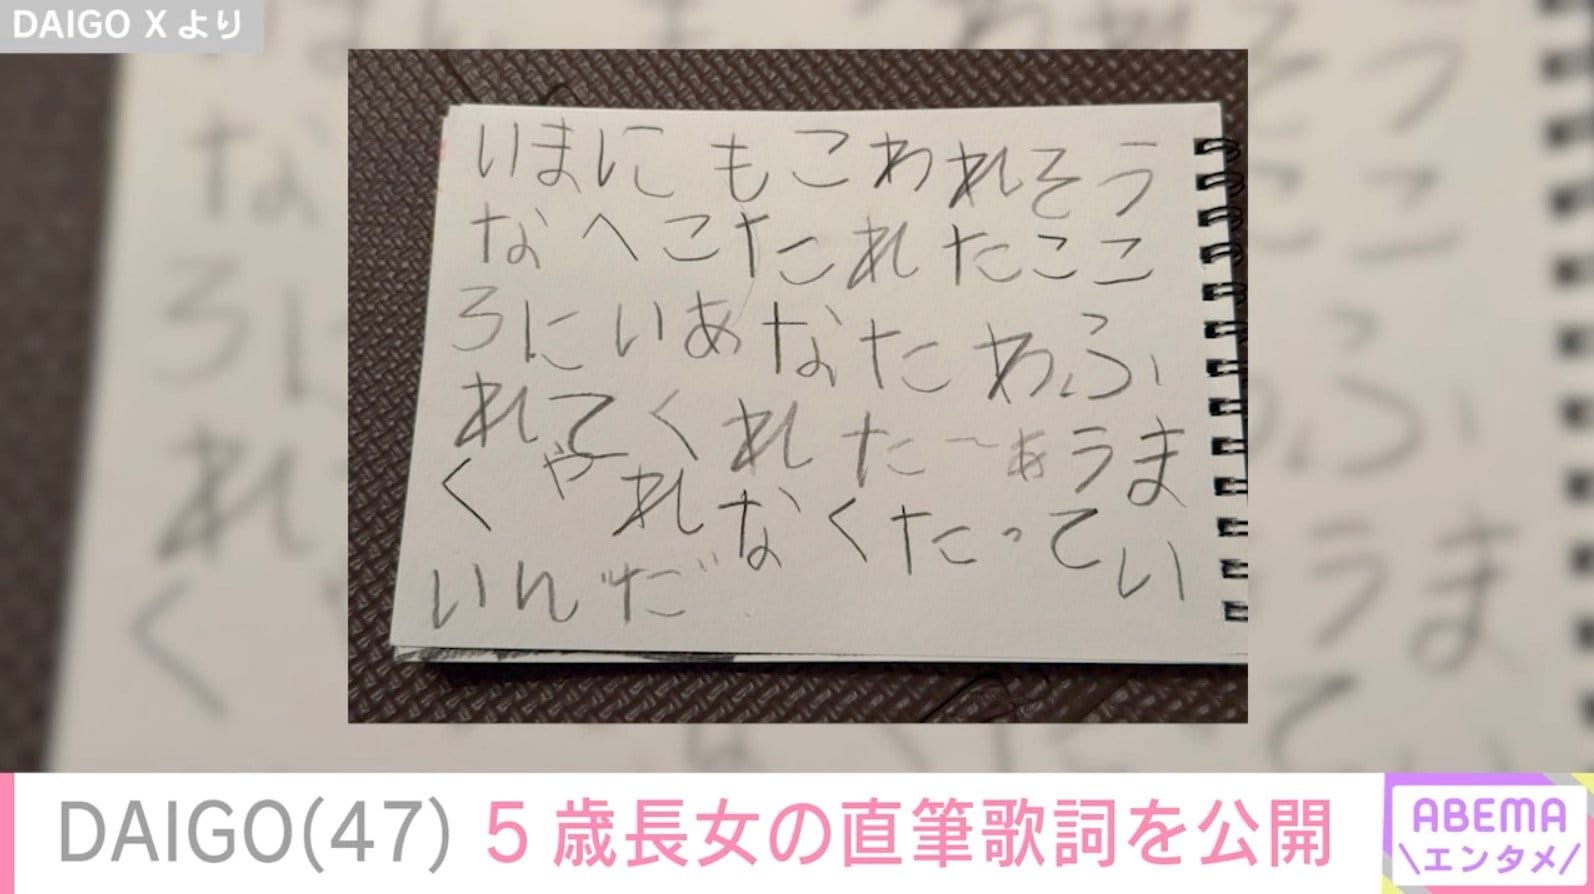 DAIGO Xより
いまにもこわれそう
なへこたこれたここ
ろにいあなたわふ
れてくれた〜あうま
くやれなくたってい
いんだ
DAIGO(47) 5歳長女の直筆歌詞を公開
ABEMA
\エンタメ/